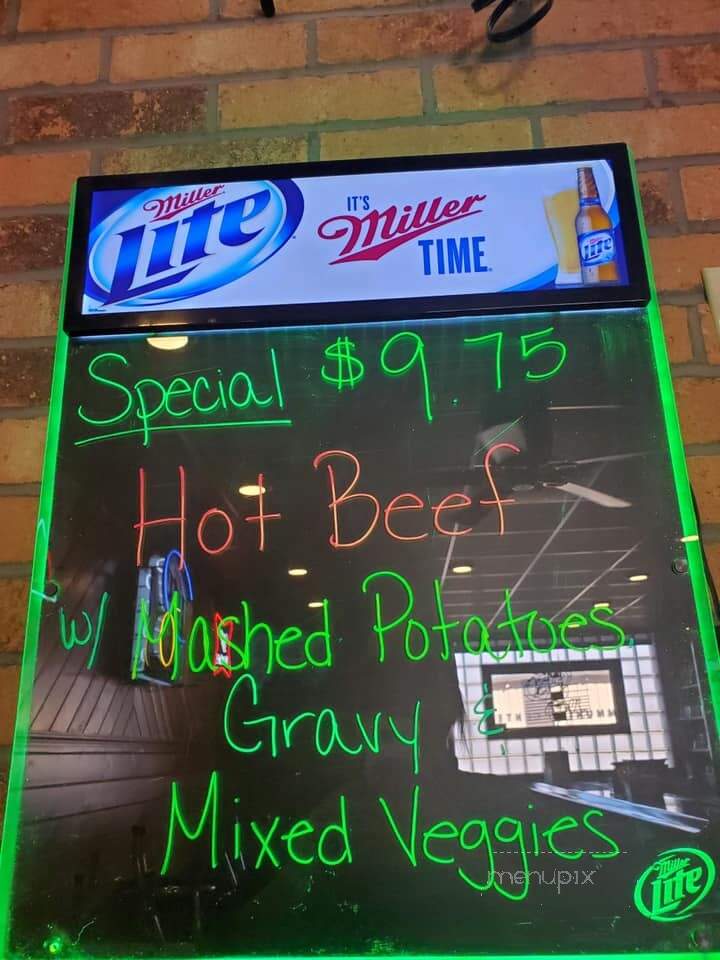 Miller
Lite
IT'S
Miller
TIME
Lite
Special $9.75
Hot Beef
w/ Mashed Potatoes
Gravy &
Mixed Veggies
menupix
Miller
Lite